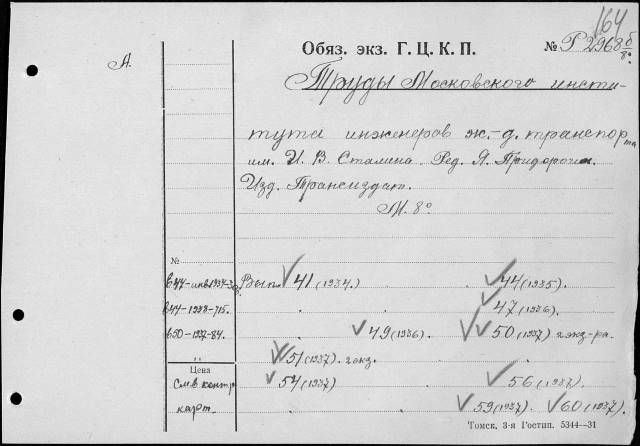 164
Обяз. экз. Г. Ц. К. П. № Р 2968 б/8°
А.
Труды Московского инсти-
тута инженеров ж.-д. транспорта
им. И. В. Сталина. Ред. Я. Придорогин.
Изд. Трансиздат.
М. 8°
№
в44-инв1937- Вып. 41 (1934.) 44 (1935).
в44-1938-715. 47 (1936)
в50-1937-84. 49 (1936) 50 (1937) 2 экз-ра.
„ 51 (1937). 2 экз.
Цена
См в контр 54 (1937) 56 (1937).
карт. 59 (1937). 60 (1937).
Томск, 3-я Гостип. 5344—31